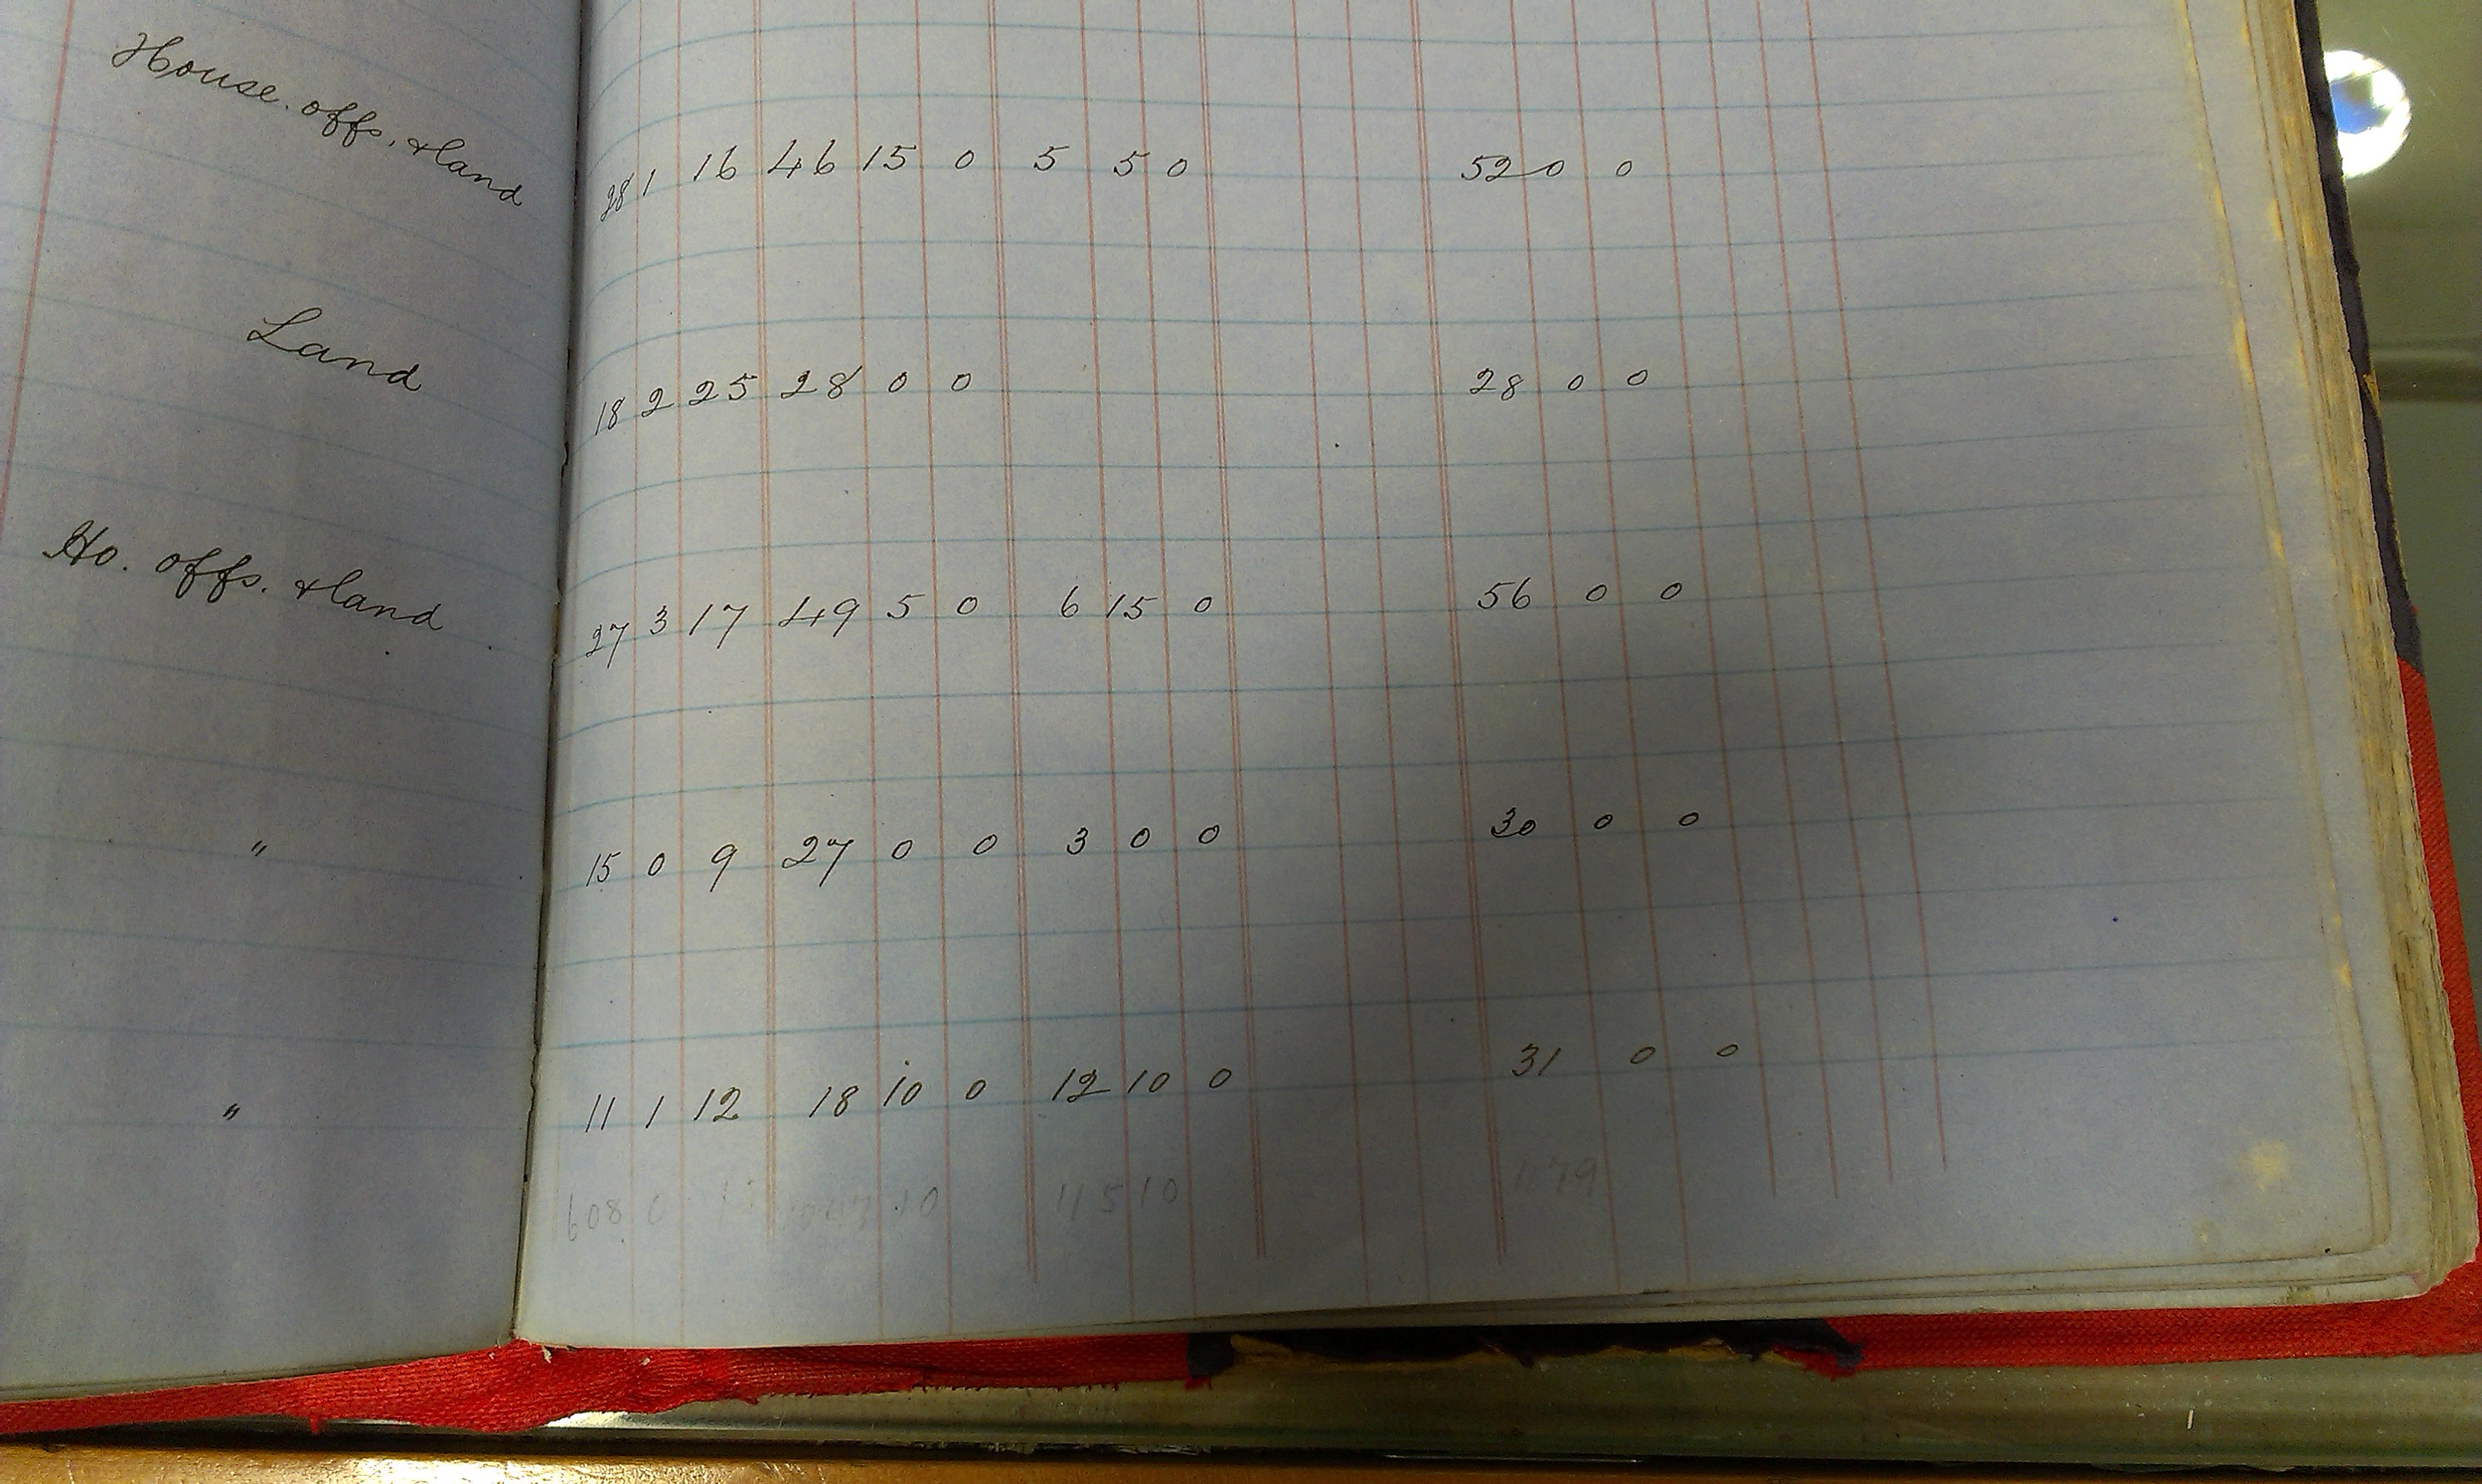 House. offs. & land 28 1 16 46 15 0 5 5 0 52 0 0
Land 18 2 25 28 0 0 28 0 0
Ho. offs. & land 27 3 17 49 5 0 6 15 0 56 0 0
" 15 0 9 27 0 0 3 0 0 30 0 0
" 11 1 12 18 10 0 12 10 0 31 0 0
608 0 10 115 10 1179